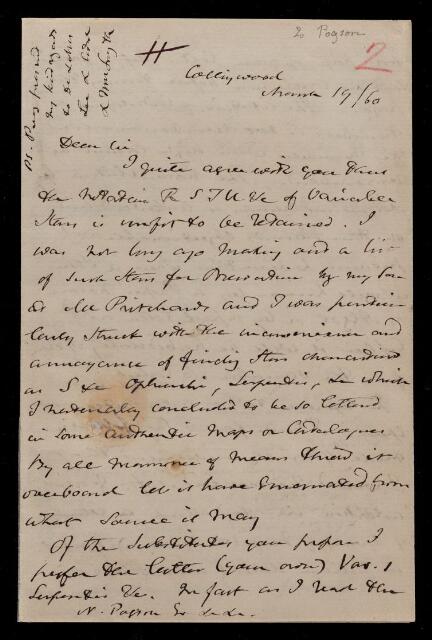 to Pogson
2
Collingwood
March 19/60
PS. Pray present
my kind regards
to Dr
Lee & Adml
& Mrs Smyth
Dear Sir
I quite agree with you that
the notation R S T U &c of Variable
Stars is unfit to be retained. I
was not long ago making out a list
of such Stars for Observation by my Son
at Mr Pritchards and I was particu-
larly struck with the inconvenience and
annoyance of finding Stars denominated
as S &c Ophiuchi, Serpentis, &c which
I naturally concluded to be so lettered
in some authentic Maps or Catalogues
By all manner of means throw it
overboard let it have emanated from
what source it may
Of the substitutes you propose I
prefer the latter (your own) Var. 1
Serpentis &c. In fact as I read the
N. Pogson Esq &c &c.